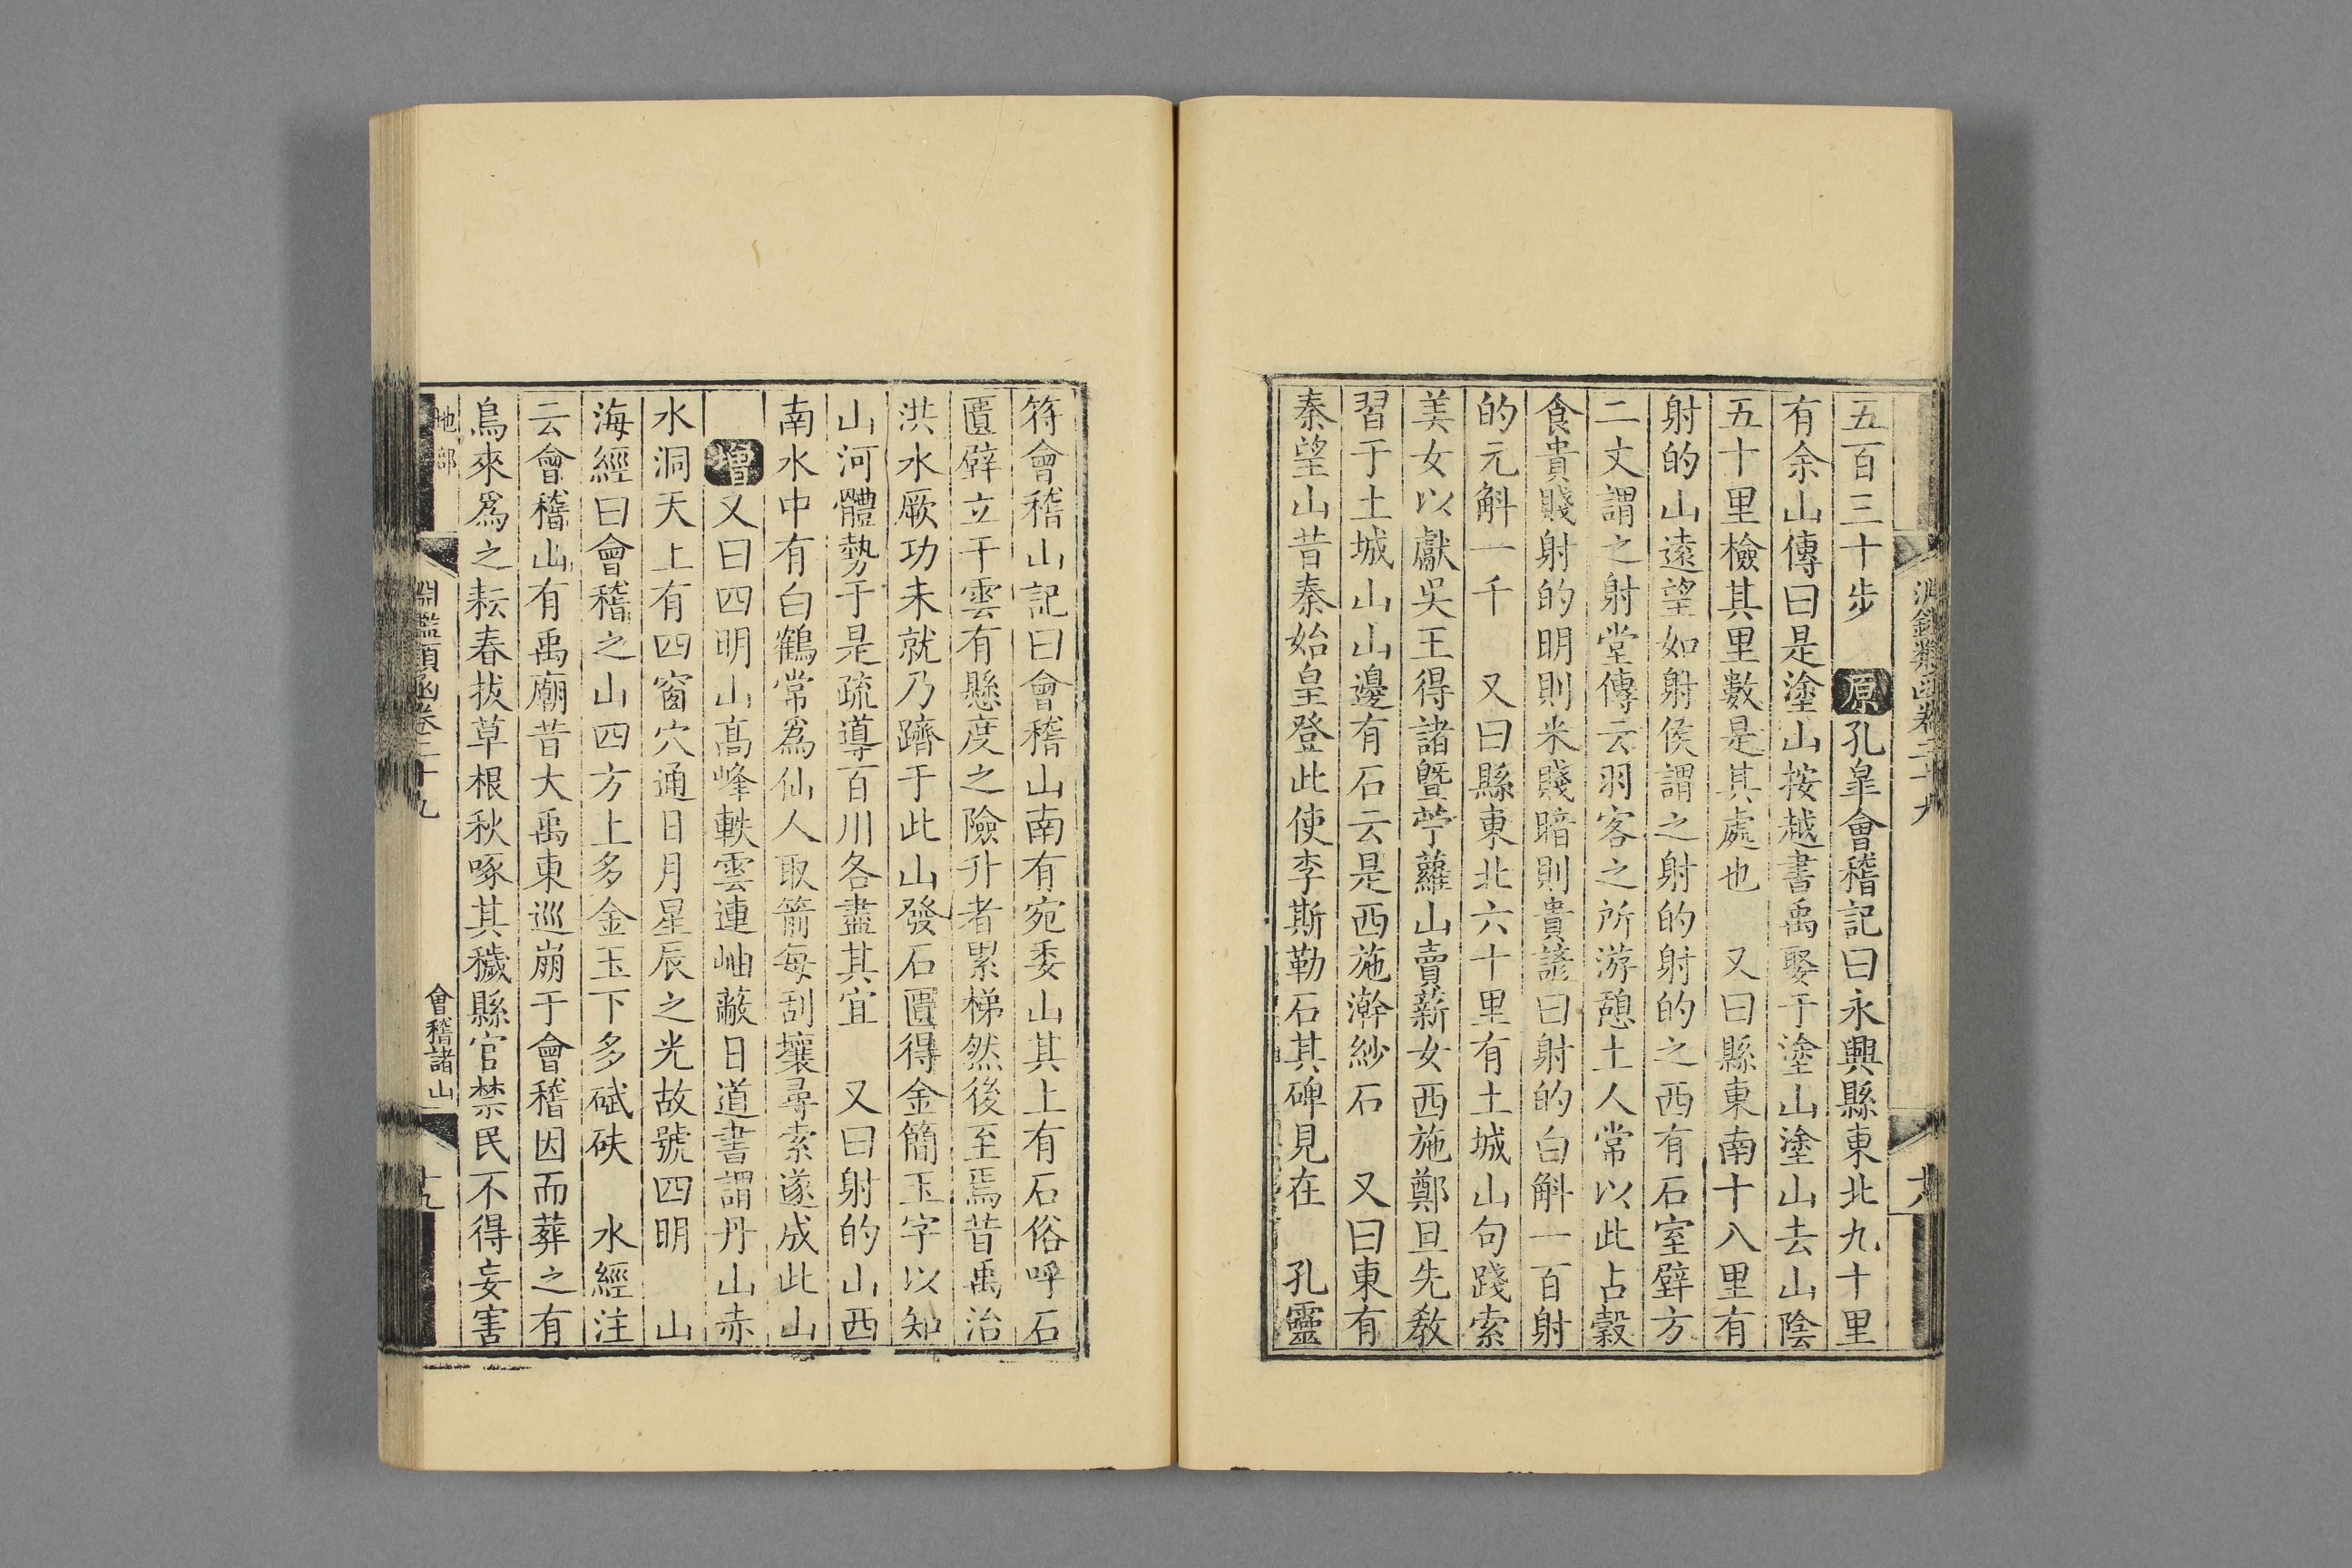 五百三十步　原孔皐會稽記曰永興縣東北九十里
有余山傳曰是塗山按越書禹娶于塗山塗山去山陰
五十里檢其里數是其處也　又曰縣東南十八里有
射的山遠望如射侯謂之射的射的之西有石室壁方
二丈謂之射堂傳云羽客之所游憩土人常以此占穀
食貴賤射的明則米賤暗則貴諺曰射的白斛一百射
的元斛一千　又曰縣東北六十里有土城山句踐索
美女以獻吳王得諸曁苧蘿山賣薪女西施鄭旦先敎
習于土城山山邊有石云是西施澣紗石　又曰東有
秦望山昔秦始皇登此使李斯勒石其碑見在　孔靈
符會稽山記曰會稽山南有宛委山其上有石俗呼石
匱壁立干雲有懸度之險升者累梯然後至焉昔禹治
洪水厥功未就乃躋于此山發石匱得金簡玉字以知
山河體勢于是疏導百川各盡其宜　又曰射的山西
南水中有白鶴常爲仙人取箭每刮壤尋索遂成此山
增又曰四明山高峰軼雲連岫蔽日道書謂丹山赤
水洞天上有四窗穴通日月星辰之光故號四明　山
海經曰會稽之山四方上多金玉下多砆砆　水經注
云會稽山有禹廟昔大禹東巡崩于會稽因而葬之有
鳥來爲之耘春拔草根秋啄其穢縣官禁民不得妄害
地部　淵鑑類函卷二十九　會稽諸山　十九